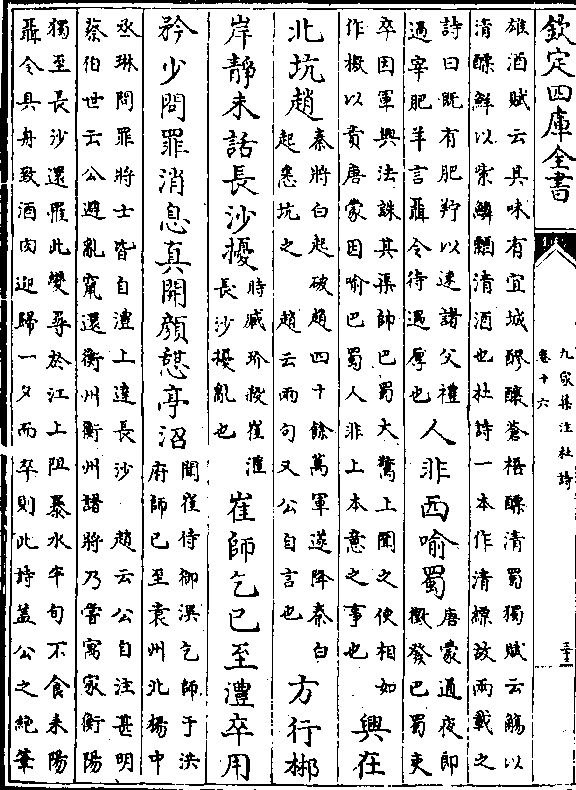 欽定四庫全書
九家集注杜詩
卷十六
雄酒賦云其味有宜城醪醴蒼梧醥清蜀獨賦云觴以
清醥鮮以紫鱗醥清酒也杜詩一本作清縹故兩載之
詩曰既有肥羜以速諸父禮
過宰肥羊言聶令待過厚也
人非西喻蜀
唐蒙通夜郎
徵發巴蜀吏
卒因軍興法誅其渠帥巴蜀大驚上聞之使相如
作檄以責唐蒙因喻巴蜀人非上本意之事也
興在
北坑趙
秦將白起破趙四十餘萬軍遂降秦白
起悉坑之 趙云兩句又公自言也
方行郴
岸靜未話長沙擾
時臧玠殺崔瓘
長沙擾亂也
崔師乞已至澧卒用
矜少問罪消息真開顏憇亭沼
聞崔侍御潠乞師于洪
府師已至袁州北楊中
丞琳問罪將士皆自澧上達長沙 趙云公自注甚明
蔡伯世云公避亂竄還衡州衡州諸將乃嘗寓家衡陽
獨至長沙還罹此變尋於江上阻暴水半旬不食耒陽
聶令具舟致酒肉迎歸一夕而卒則此詩蓋公之絶筆